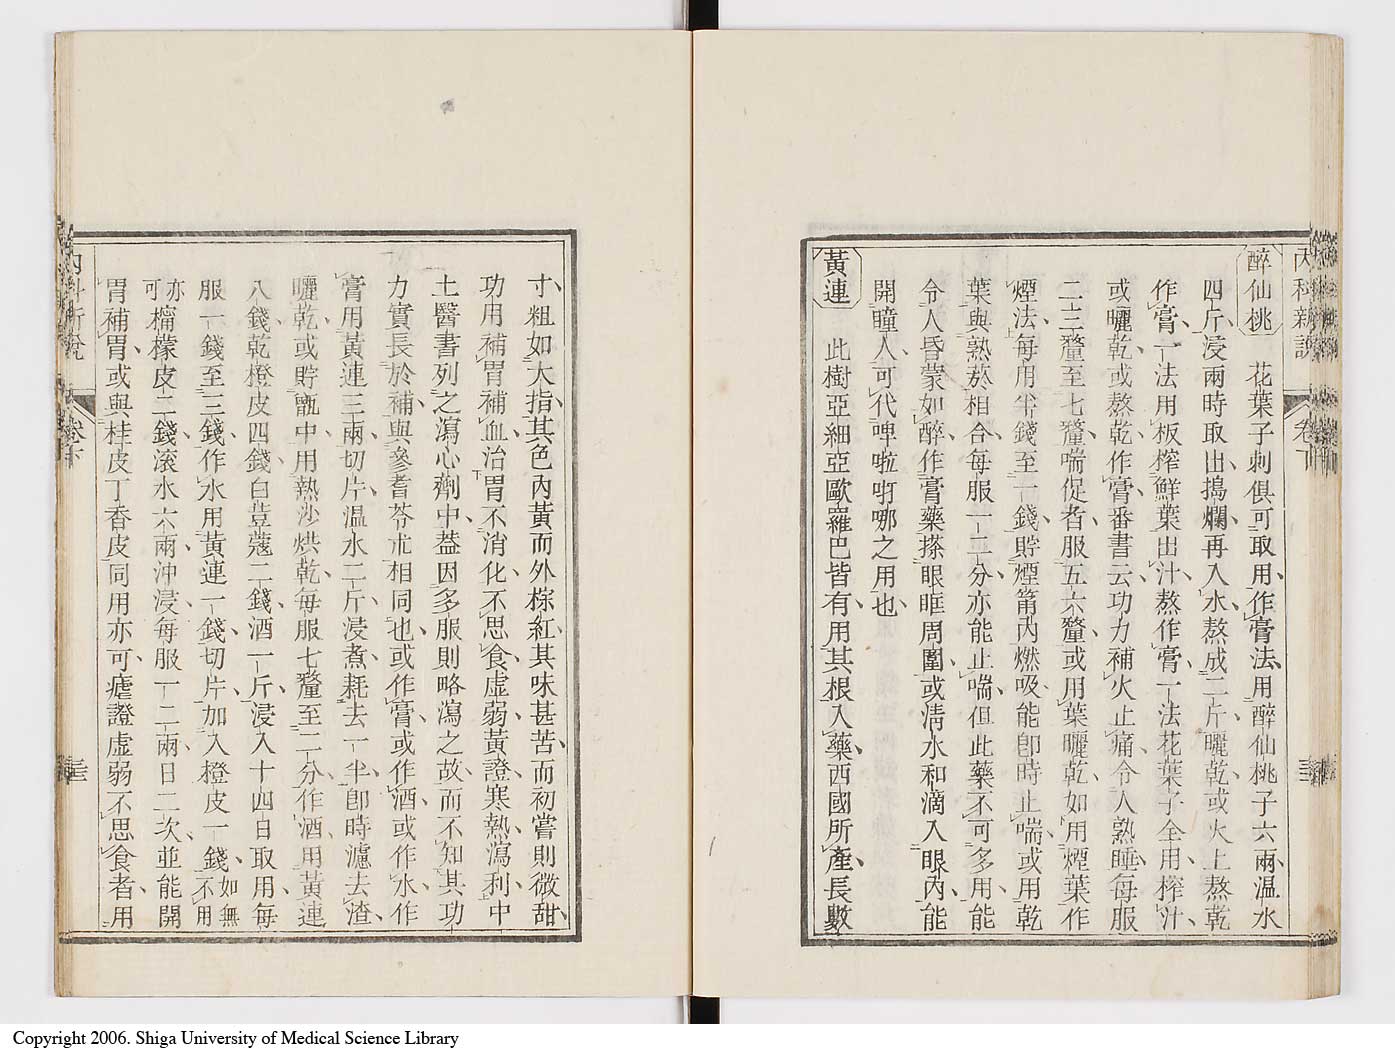 內科新說 卷下
醉仙桃 花葉子刺俱可取用、作膏法、用醉仙桃子六兩、温水
四斤、浸兩時取出搗爛、再入水熬成二斤、曬乾或火上熬乾
作膏、一法用板榨鮮葉出汁、熬作膏、一法花葉子全用、榨汁、
或曬乾、或熬乾作膏、番書云、功力補火止痛、令人熟睡、每服
二三釐至七釐、喘促者服五六釐、或用葉曬乾、如用煙葉作
煙法、每用半錢至一錢、貯煙筩內燃吸、能卽時止喘、或用乾
葉與熟菸相合、每服一二分、亦能止喘、但此藥不可多用、能
令人昏蒙如醉、作膏藥搽眼眶周圍、或清水和滴入眼內、能
開瞳人、可代啤啦哢哪之用也、
黃連 此樹亞細亞歐羅巴皆有、用其根入藥、西國所產、長數
寸、粗如大指、其色內黃而外棕紅、其味甚苦、而初嘗則微甜、
功用補胃補血、治胃不消化、不思食、虛弱黃證、寒熱瀉利、中
土醫書列之瀉心劑中、葢因多服則略瀉之故、而不知其功
力實長於補、與參耆苓朮相同也、或作膏、或作酒、或作水、作
膏用黃連三兩、切片、温水二斤、浸煮、耗去一半、卽時濾去渣、
曬乾、或貯甑中、用熱沙烘乾、每服七釐至二分、作酒用黃連
八錢、乾橙皮四錢、白荳蔻二錢、酒一斤、浸入十四日取用、每
服一錢至三錢、作水用黃連一錢、切片、加入橙皮一錢、如無不用
亦可、檸檬皮二錢、滚水六兩沖浸、每服一二兩、日二次、並能開
胃補胃、或與桂皮丁香皮同用亦可、瘧證虛弱不思食者、用
內科新說 卷下
Copyright 2006. Shiga University of Medical Science Library